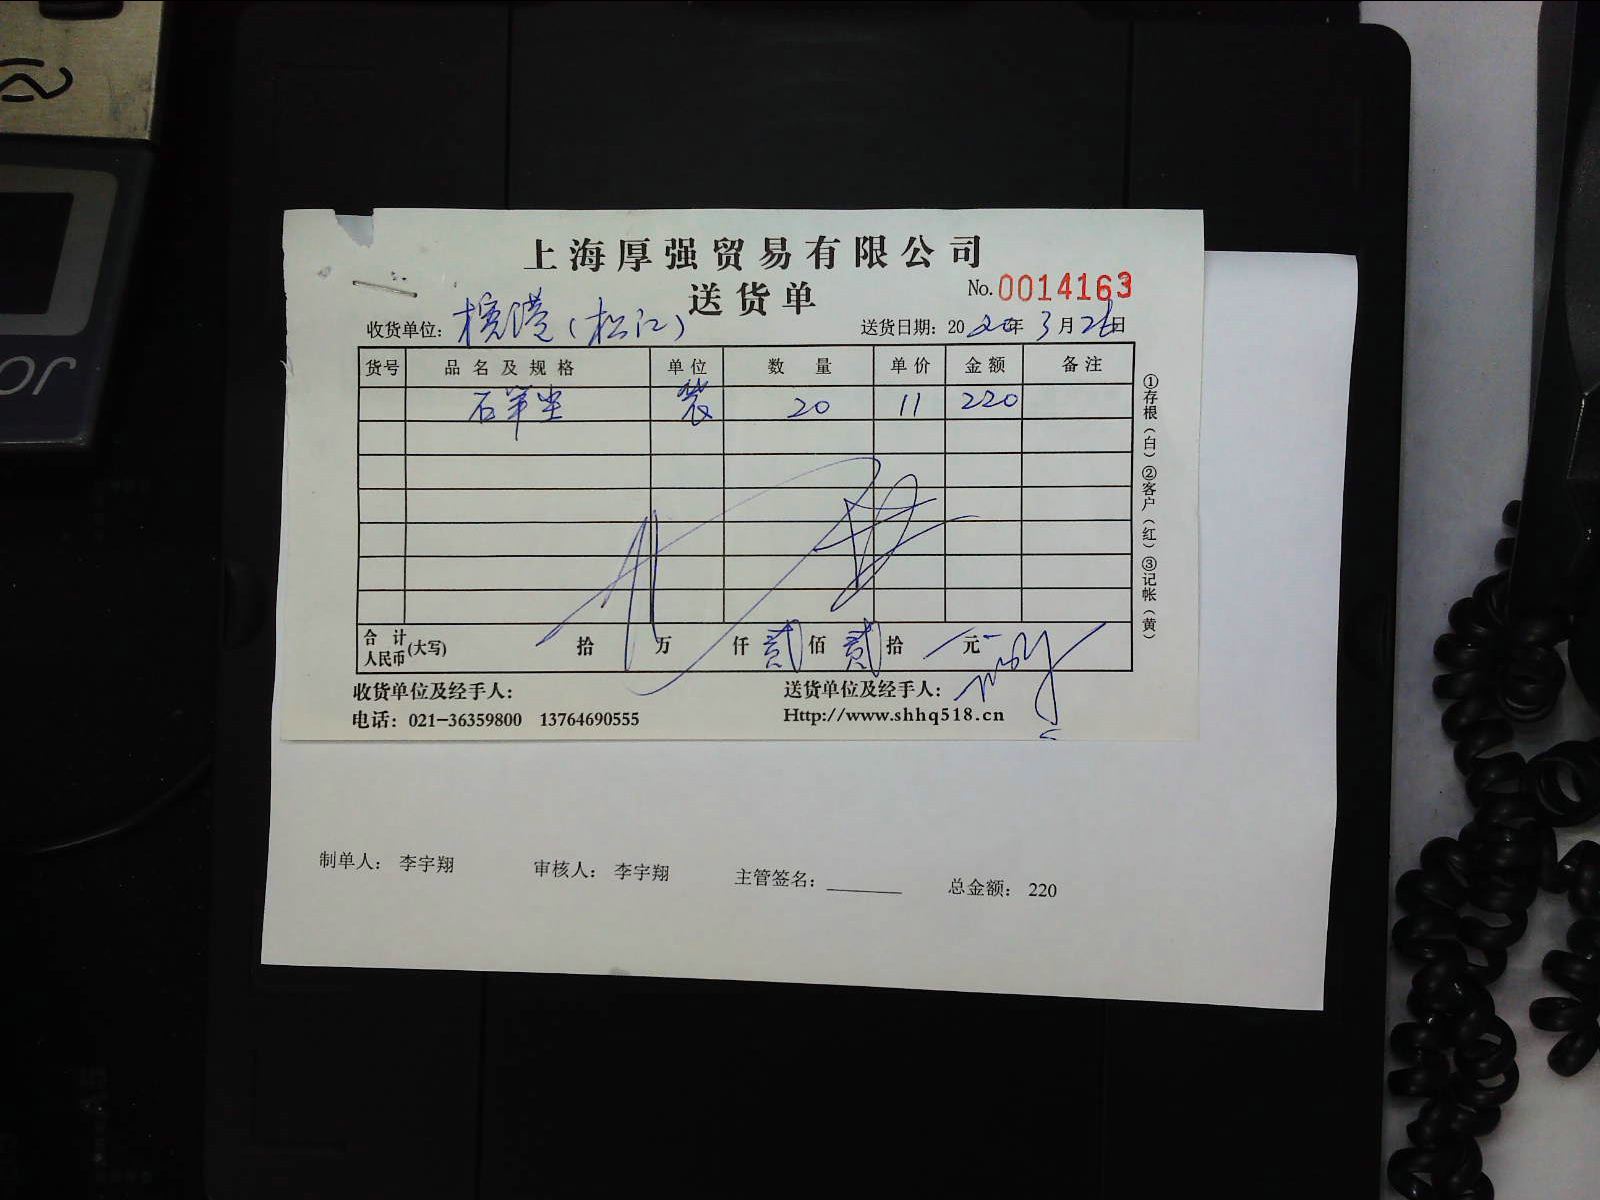 上海厚强贸易有限公司
送货单
No. 0014163
收货单位: (松江)
送货日期: 2020年3月26日
货号 品名及规格 单位 数量 单价 金额 备注
20 11 220
合计人民币(大写) 拾 万 仟 贰 佰 贰 拾 元
收货单位及经手人:
送货单位及经手人:
电话: 021-36359800 13764690555
Http://www.shhq518.cn
①存根(白) ②客户(红) ③记帐(黄)
制单人: 李宇翔 审核人: 李宇翔 主管签名: ________ 总金额: 220